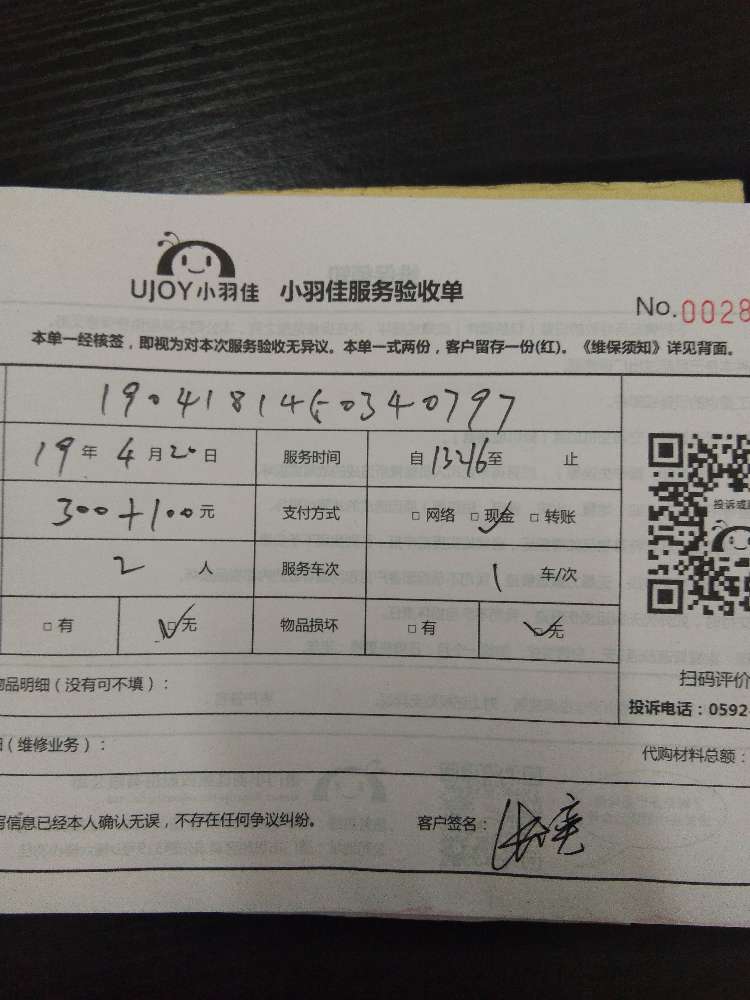 UJOY小羽佳 小羽佳服务验收单
No.0028
本单一经核签，即视为对本次服务验收无异议。本单一式两份，客户留存一份(红)。《维保须知》详见背面。
19年4月20日 服务时间 自1326至 止
300+100元 支付方式 □网络 □现金 □转账
2人 服务车次 1车/次
□有 □无 物品损坏 □有 □无
投诉或
扫码评价
物品明细（没有可不填）：
投诉电话：0592-
（维修业务）：
代购材料总额：
写信息已经本人确认无误，不存在任何争议纠纷。 客户签名：